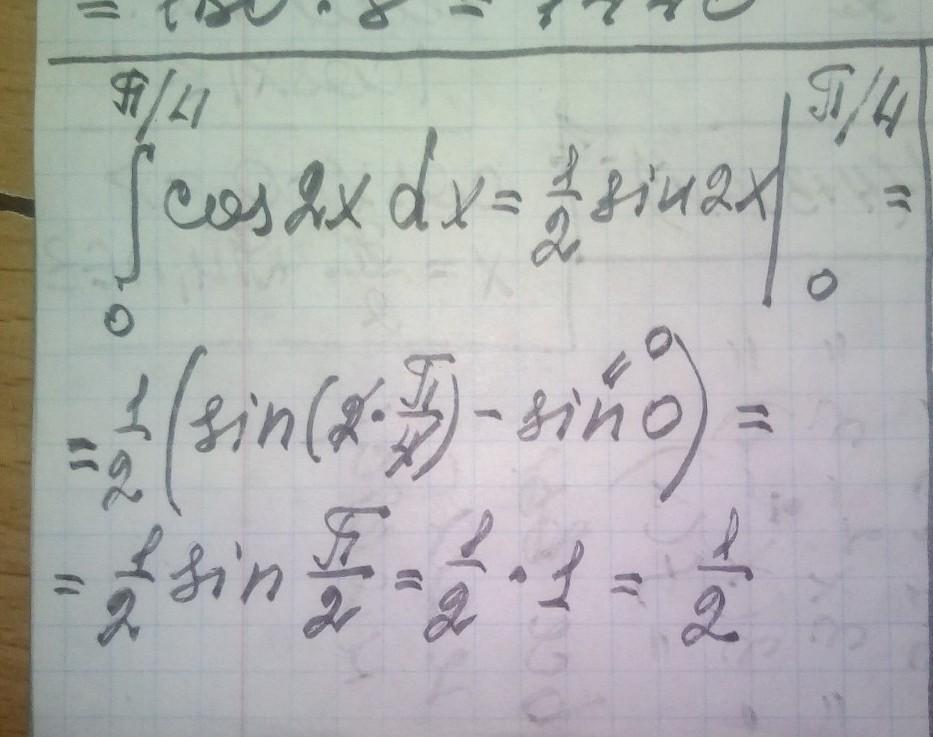 π/4
∫ cos 2x dx = 1/2 sin 2x | π/4 =
0 0
= 1/2 (sin(2·π/4) - sin 0) = 
= 1/2 sin π/2 = 1/2 · 1 = 1/2